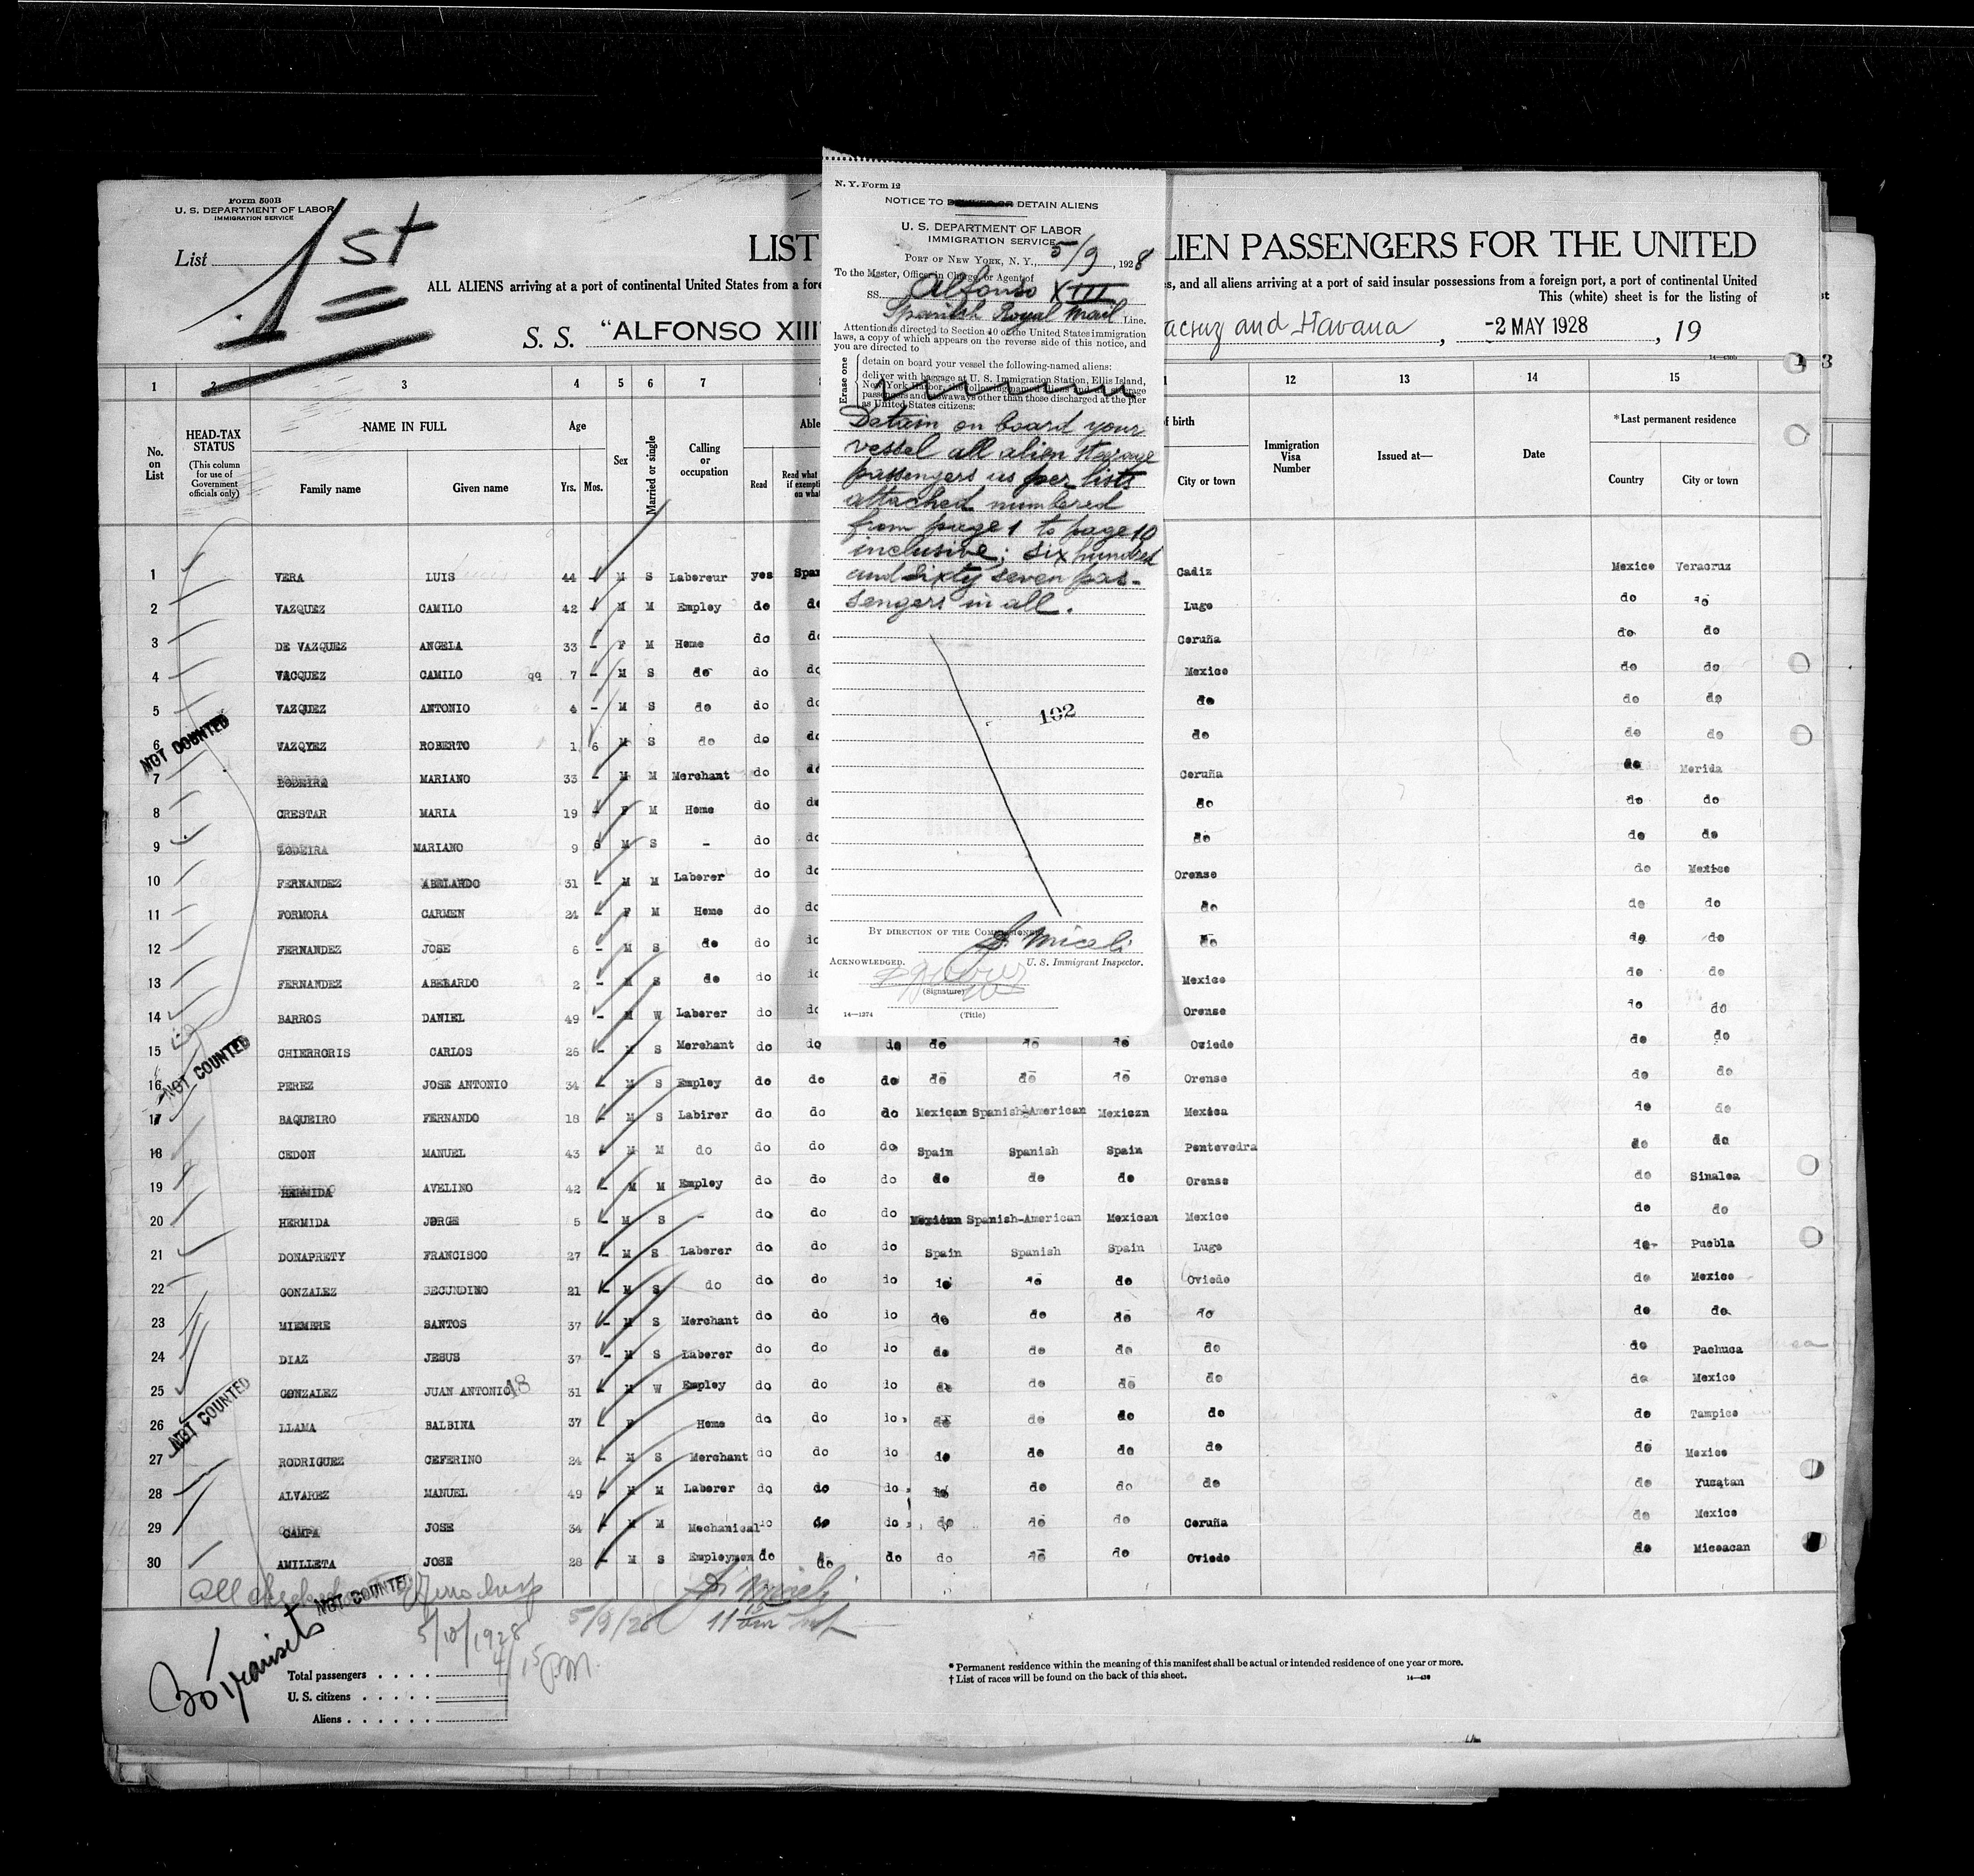 Form 500B
U. S. DEPARTMENT OF LABOR
IMMIGRATION SERVICE
List 1st
LIST
LIEN PASSENGERS FOR THE UNITED
ALL ALIENS arriving at a port of continental United States from a fore
s, and all aliens arriving at a port of said insular possessions from a foreign port, a port of continental United
This (white) sheet is for the listing of
S. S. "ALFONSO XIII
acruz and Havana , -2 MAY 1928 , 19
N. Y. Form 12
NOTICE TO DETAIN ALIENS
U. S. DEPARTMENT OF LABOR
IMMIGRATION SERVICE
PORT OF NEW YORK, N. Y., 5/9, 1928
To the Master, Officer in Charge or Agent of
SS. Alfonso XIII
Spanish Royal Mail Line.
Attention is directed to Section 10 of the United States immigration
laws, a copy of which appears on the reverse side of this notice, and
you are directed to
Erase one
detain on board your vessel the following-named aliens:
deliver with baggage at U. S. Immigration Station, Ellis Island,
New York Harbor, the following-named aliens and all steerage
passengers and stowaways other than those discharged at the pier
as United States citizens:
Detain on board your
vessel all alien steerage
passengers as per lists
attached numbered
from page 1 to page 10
inclusive; six hundred
and sixty seven pas-
sengers in all.
102
BY DIRECTION OF THE COMMISSIONER
S. Miceli
ACKNOWLEDGED. U. S. Immigrant Inspector.
(Signature)
14—1274 (Title)
1 2 3 4 5 6 7 12 13 14 15
No. on List
HEAD-TAX STATUS
(This column for use of Government officials only)
NAME IN FULL
Family name Given name
Age
Yrs. Mos.
Sex
Married or single
Calling or occupation
Able
Read
Read what
if exempti
on what
f birth
City or town
Immigration Visa Number
Issued at—
Date
*Last permanent residence
Country City or town
1 VERA LUIS 44 - M S Labereur yes Span Cadiz Mexico Veracruz
2 VAZQUEZ CAMILO 42 - M M Empley do do Lugo do do
3 DE VAZQUEZ ANGELA 33 - F M Home do do Coruña do do
4 VACQUEZ CAMILO 7 - M S do do do Mexico do do
5 VAZQUEZ ANTONIO 4 - M S do do do do do do
6 VAZQYEZ ROBERTO 1 6 M S do do do do do
7 MARIANO 33 - M M Merchant do do Coruña do Merida
8 CRESTAR MARIA 19 - F M Home do do do do do
9 LODEIRA MARIANO 9 6 M S - do do do do do
10 FERNANDEZ ABELARDO 31 - M M Laberer do do Orense do Mexico
11 FORMORA CARMEN 24 - F M Home do do do do do
12 FERNANDEZ JOSE 6 - M S do do do do do do
13 FERNANDEZ ABERARDO 2 - M S do do do Mexico do do
14 BARROS DANIEL 49 - M W Laberer do do Orense do do
15 CHIERRORIS CARLOS 26 - M S Merchant do do do do do do Oviedo do do
16 PEREZ JOSE ANTONIO 34 - M S Empley do do do do do do Orense do do
17 BAQUEIRO FERNANDO 18 - M S Labirer do do do Mexican Spanish-American Mexican Mexica do do
18 CEDON MANUEL 43 - M M do do do do Spain Spanish Spain Pontevedra do do
19 HERMIDA AVELINO 42 - M M Empley do do do do do do Orense do Sinaloa
20 HERMIDA JORGE 5 - M S - do do do Mexican Spanish-American Mexican Mexico do do
21 DONAPRETY FRANCISCO 27 - M S Laberer do do do Spain Spanish Spain Lugo do Puebla
22 GONZALEZ SECUNDINO 21 - M S do do do do do do do Oviedo do Mexico
23 MIEMBRE SANTOS 37 - M S Merchant do do do do do do do do do
24 DIAZ JESUS 37 - M S Laberer do do do do do do do do Pachuca
25 GONZALEZ JUAN ANTONIO 31 - M W Empley do do do do do do do do Mexico
26 LLAMA BALBINA 37 - F Home do do do do do do do do Tampico
27 RODRIGUEZ CEFERINO 24 - M S Merchant do do do do do do do do Mexico
28 ALVAREZ MANUEL 49 - M M Laberer do do do do do do do do Yucatan
29 CAMPA JOSE 34 - M M Mechanical do do do do do do Coruña do Mexico
30 AMILLETA JOSE 28 - M S Employmen do do do do do do Oviedo do Micoacan
NOT COUNTED
NOT COUNTED
NOT COUNTED
NOT COUNTED
All checked
5/10/1928
4/15 PM.
5/9/28 S. Miceli
11 15 am
30 transits
Total passengers
U. S. citizens
Aliens
* Permanent residence within the meaning of this manifest shall be actual or intended residence of one year or more.
† List of races will be found on the back of this sheet.
14—430